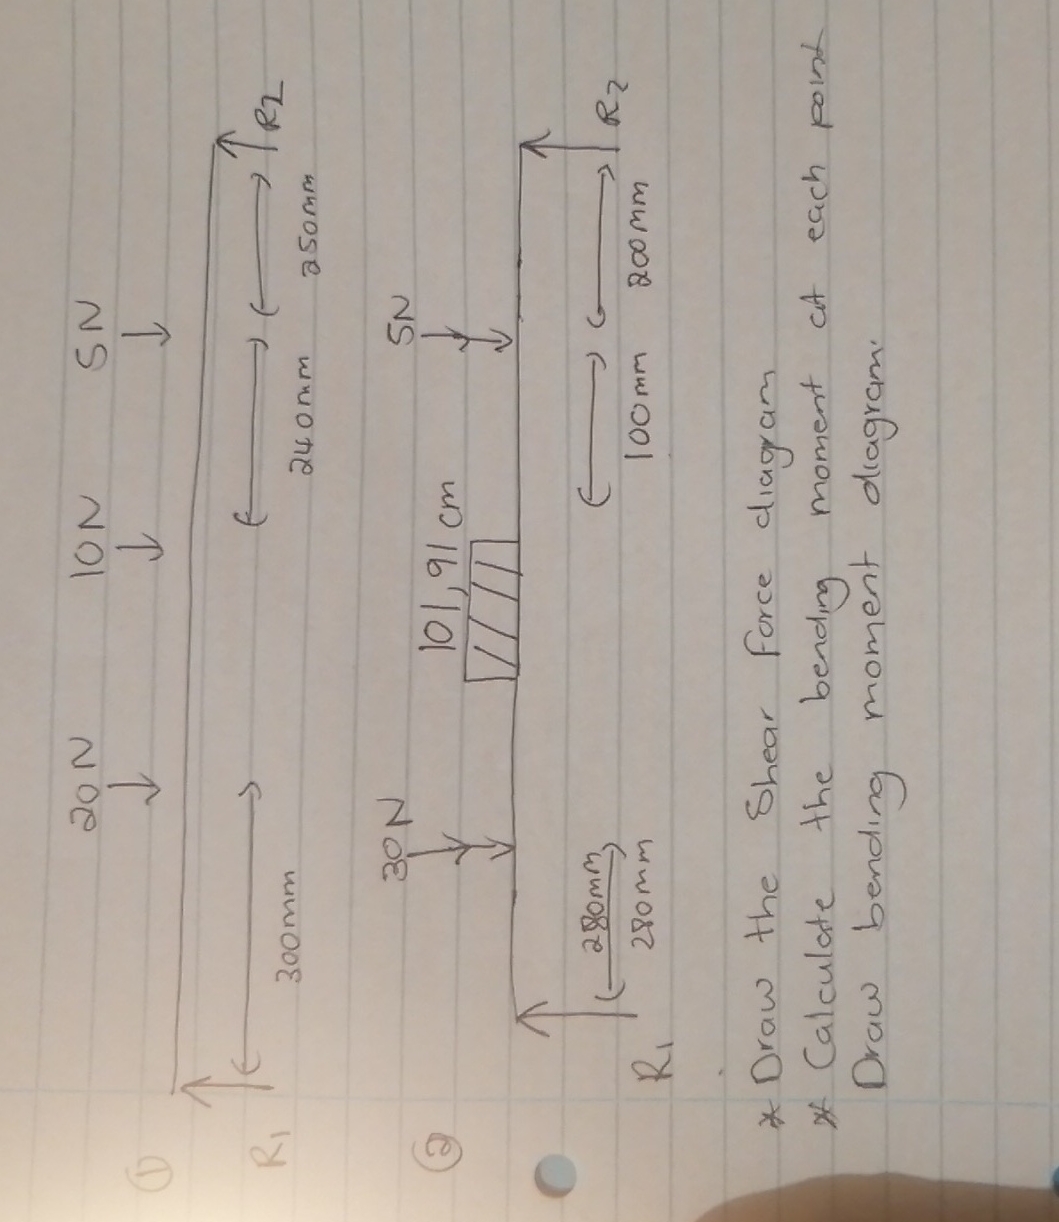 ①
20N 10N 5N
R1 R2
300mm 240mm 250mm
②
30N 101,91 cm 5N
280mm
R1 280mm 100mm 200mm R2
* Draw the Shear force diagram
* Calculate the bending moment at each point
Draw bending moment diagram.